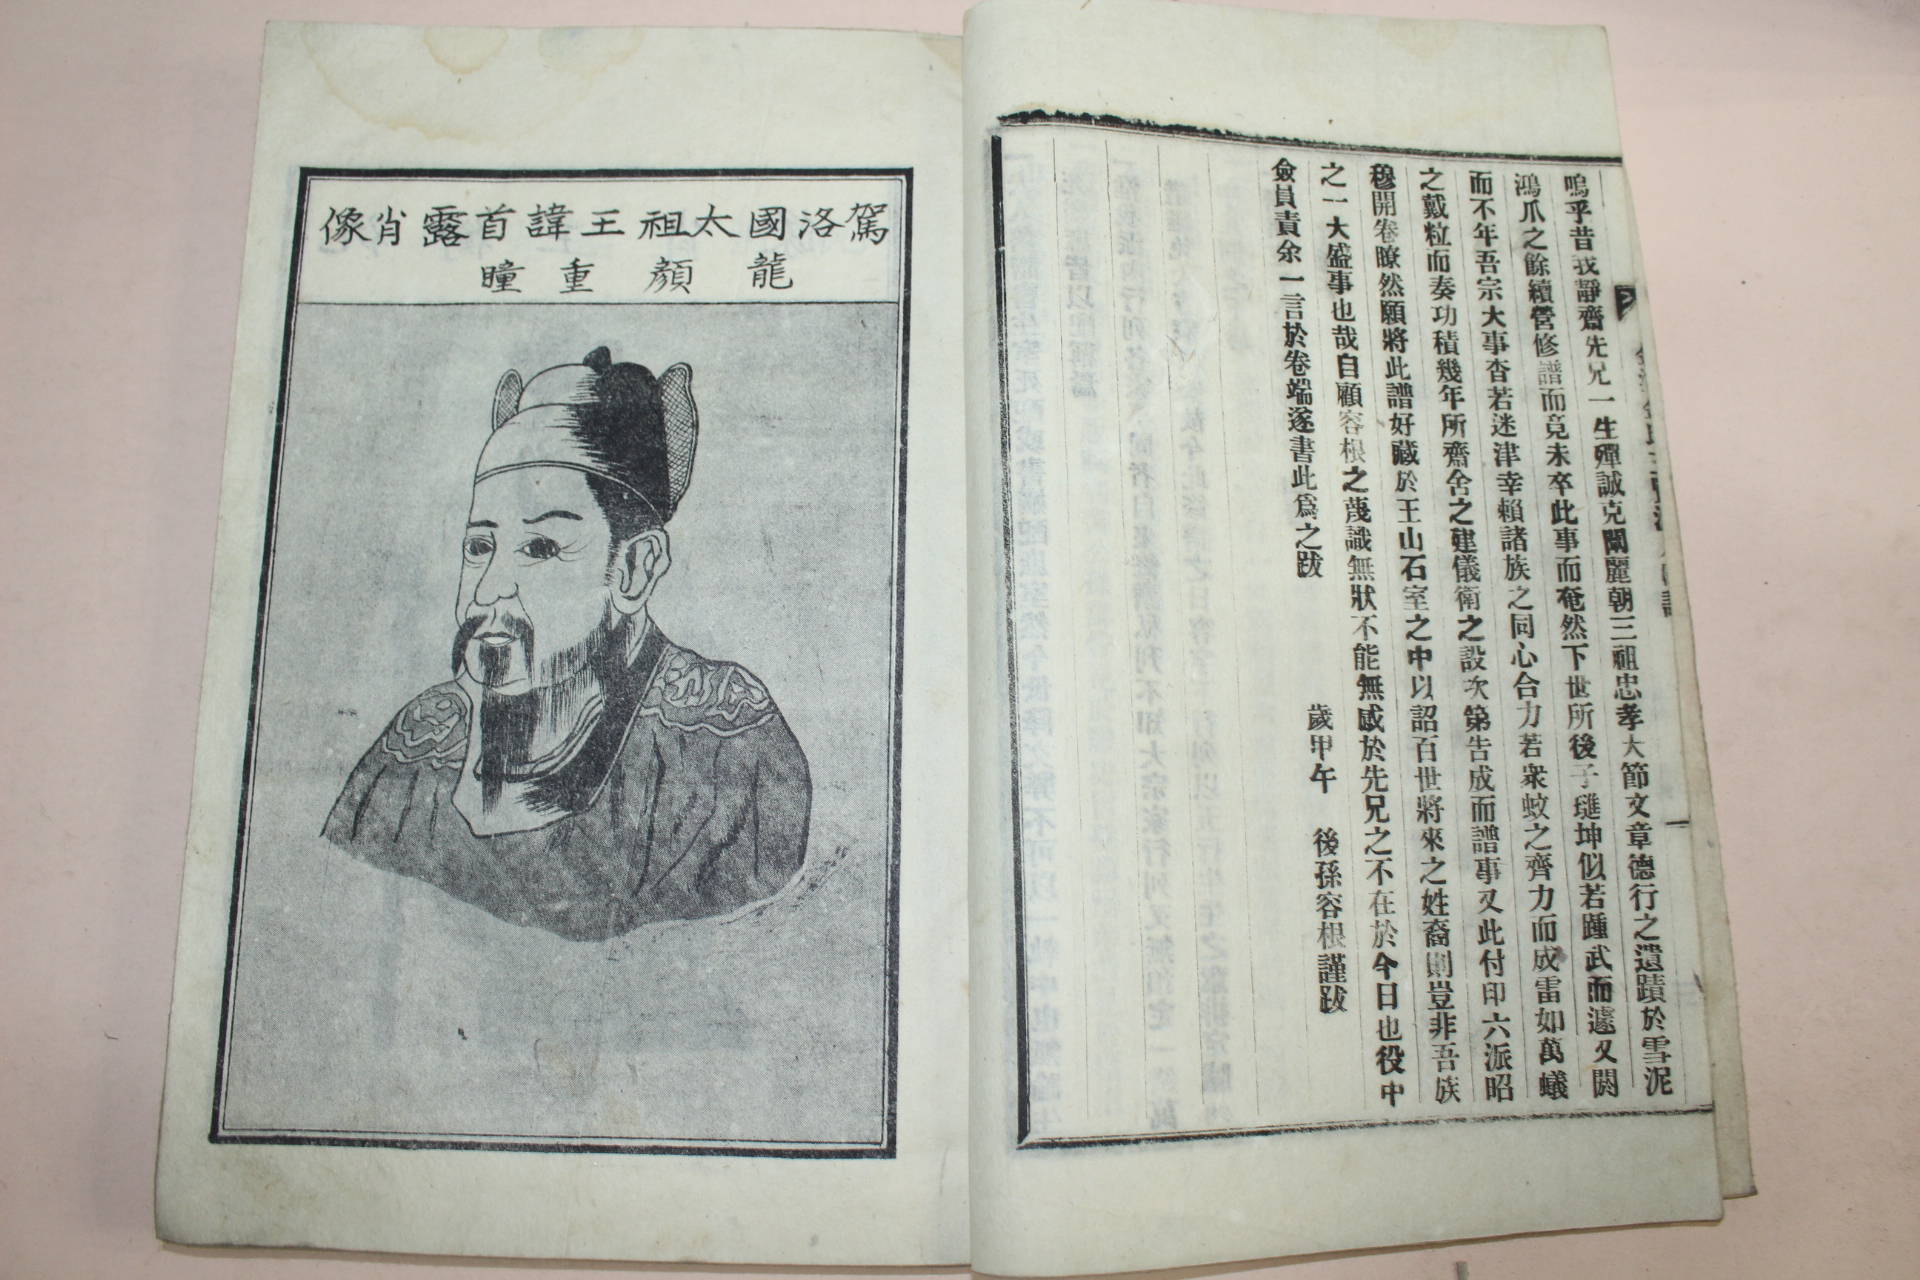 嗚乎昔我靜齋先兄一生殫誠克闡麗朝三祖忠孝大節文章德行之遺蹟於雪泥
鴻爪之餘續營修譜而竟未卒此事而奄然下世所後子璡坤似若踵武而遽又閼
而不年吾宗大事杳若迷津幸賴諸族之同心合力若衆蚊之齊力而成雷如萬蟻
之戴粒而奏功積幾年所齋舍之建儀衛之設次第告成而譜事又此付印六派昭
穆開卷瞭然願將此譜好藏於王山石室之中以詔百世將來之姓裔則豈非吾族
之一大盛事也哉自顧容根之蔑識無狀不能無感於先兄之不在於今日也役中
僉員責余一言於卷端遂書此爲之跋
歲甲午 後孫容根謹跋
駕洛國太祖王諱首露肖像
龍顏重瞳